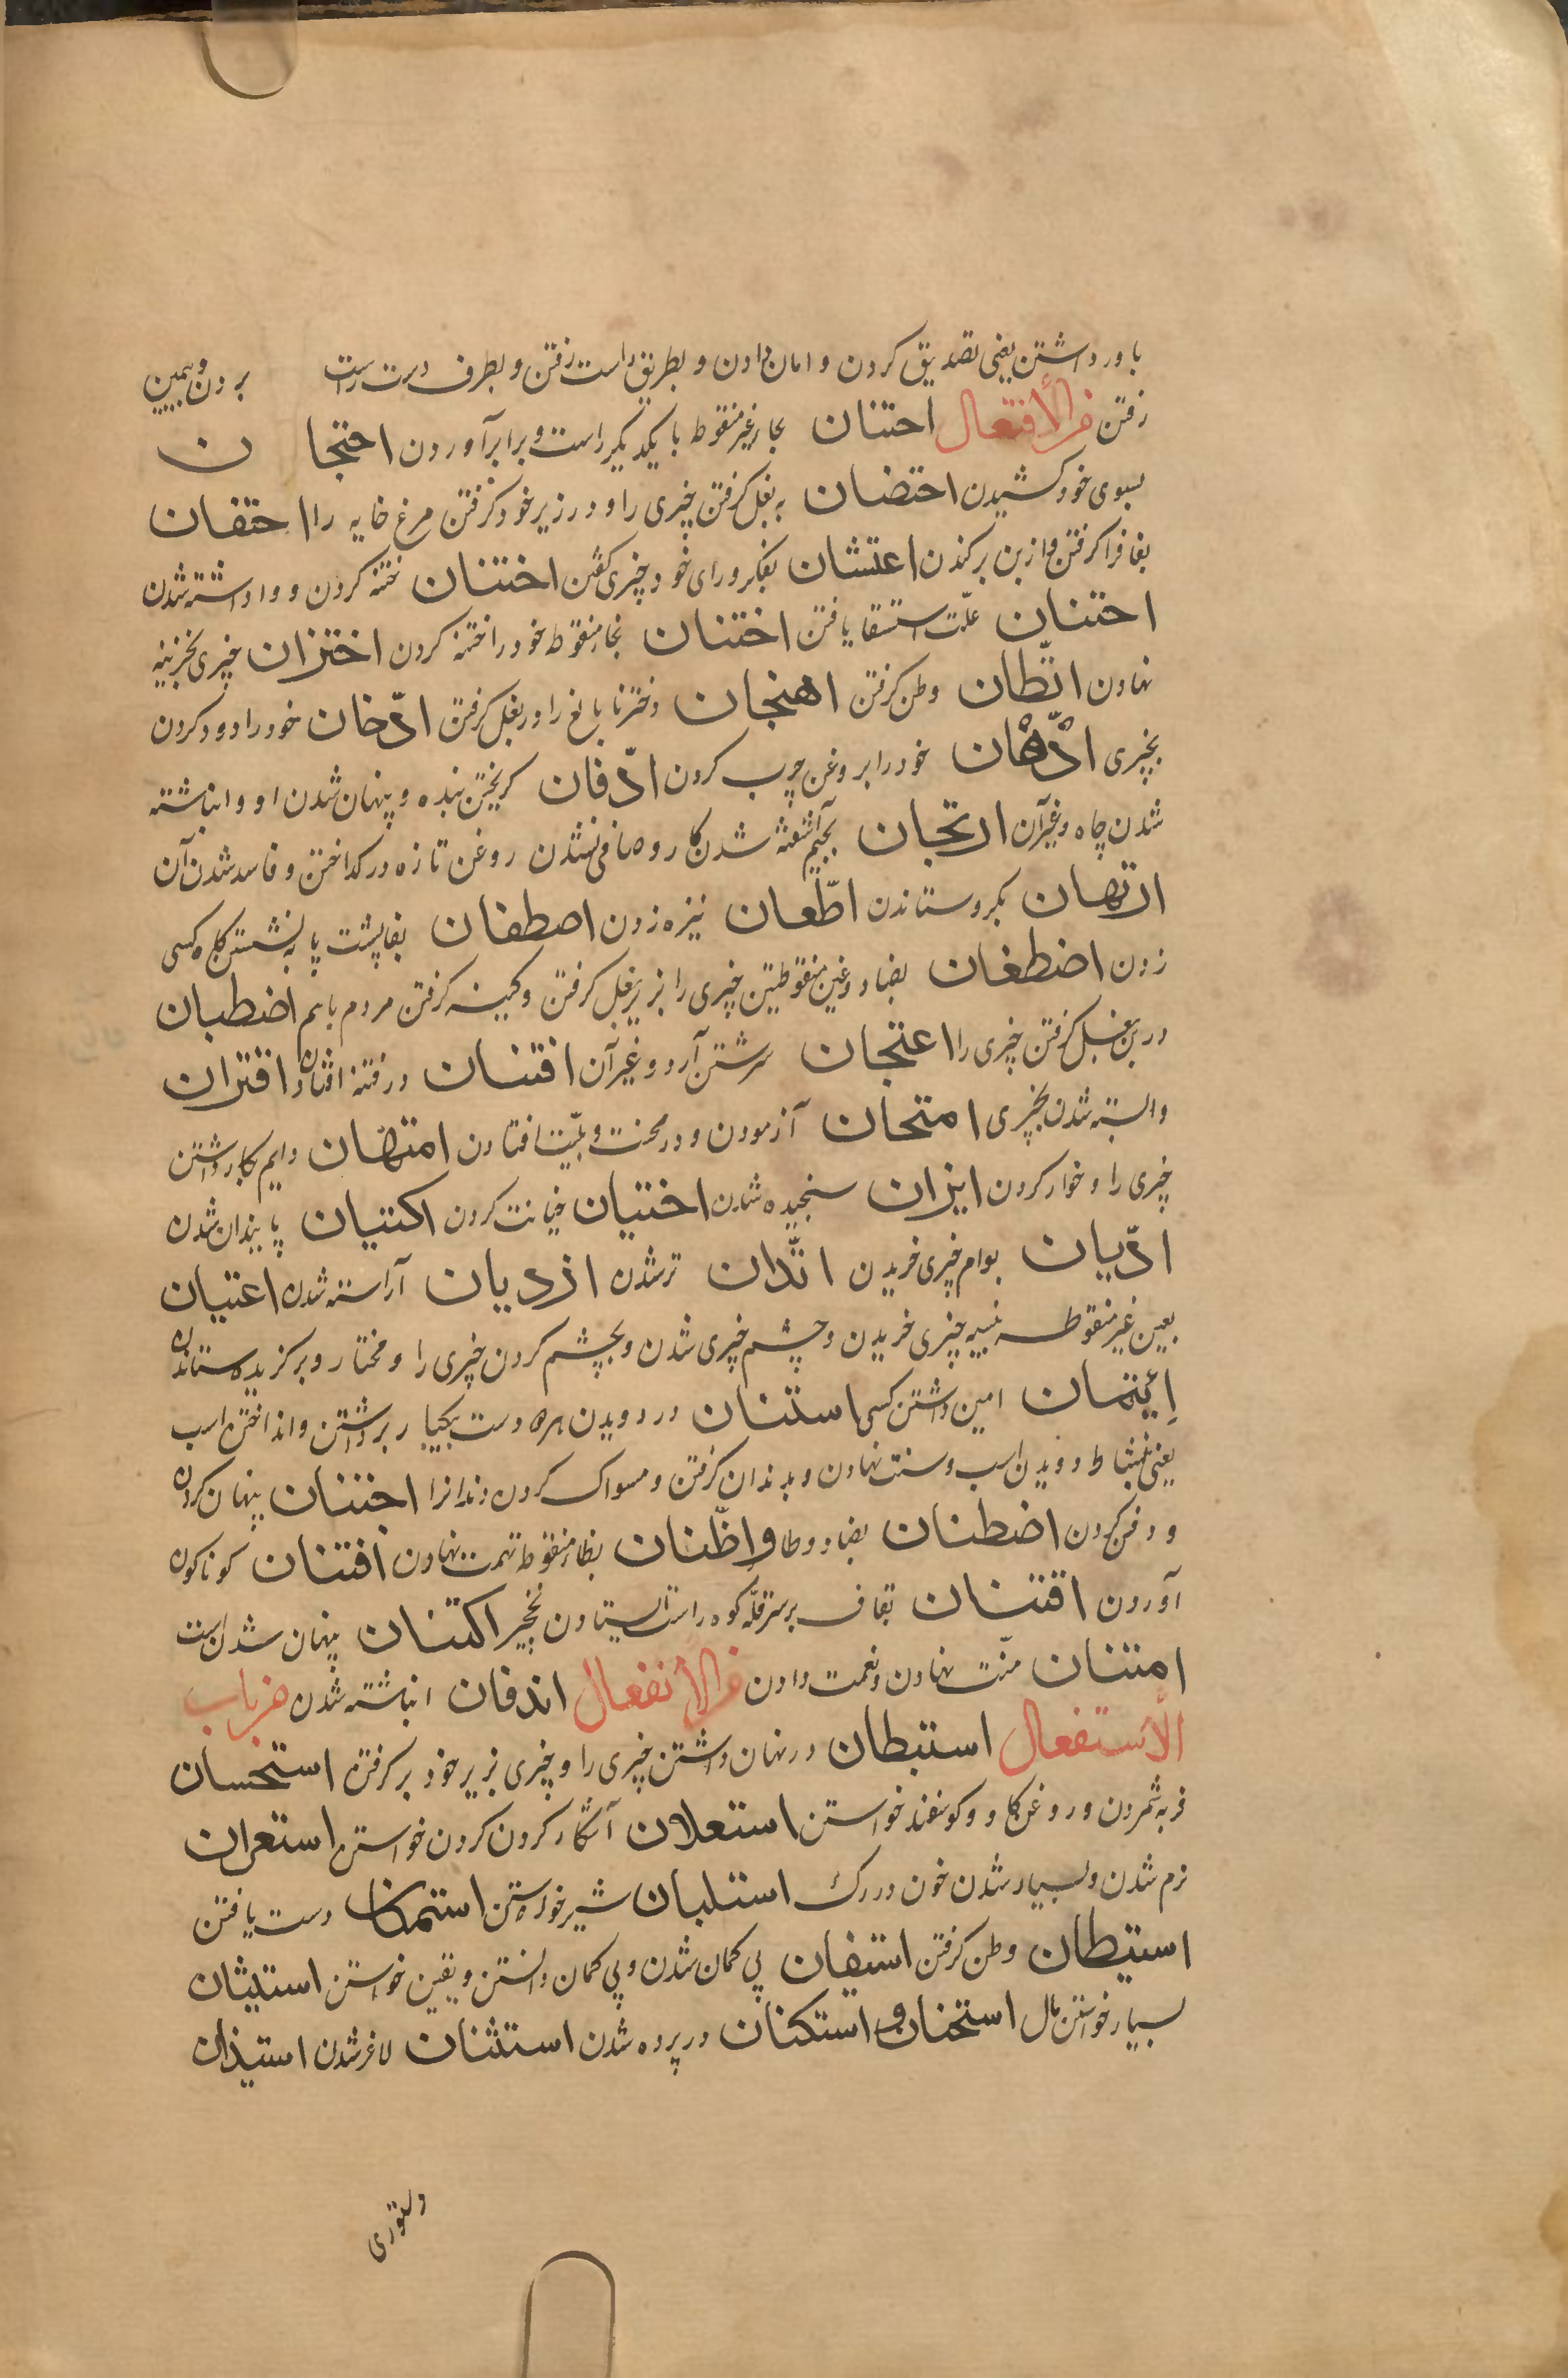 باور داشتن یعنی تصدیق کردن و امان دادن و بطریق راست رفتن و بطرف دست راست بردن و همین
رفتن من الأفتعال احتتان بحاء غیر منقوط با یکدیگر راست و برابر آوردن احتجان
بسوی خود کشیدن احتضان به بغل گرفتن چیزی را و در زیر خود گرفتن مرغ خایه را احتفان
بفا فرا گرفتن و از بن برکندن اعتشان بفکر و رای خود چیزی گفتن اختتان ختنه کردن و وا داشته شدن
احتنان علت استسقا یافتن اختتان بخاء منقوط خود را ختنه کردن اختزان چیزی بخزینه
نهادن اتّطان وطن گرفتن اهتجان دختر نابالغ را در بغل گرفتن ادّخان خود را دود کردن
بچیزی ادّهان خود را بروغن چرب کردن ادّفان گریختن بنده و پنهان شدن او و انباشته
شدن چاه و غیر آن ارتجان بجیم آشفته شدن کار و صافی نشدن روغن تازه در گداختن و فاسد شدن آن
ارتهان بگرو ستاندن اطّعان نیزه زدن اصطفان بفا پشت پا به نشستن گاه کسی
زدن اضطغان بضاد و غین منقوطتین چیزی را بزیر بغل گرفتن و کینه گرفتن مردم باهم اضطبان
در بن بغل گرفتن چیزی را اعتجان سرشتن آرد و غیر آن افتتان در فتنه افتادن اقتران
وابسته شدن بچیزی امتحان آزمودن و در محنت و بلیّت افتادن امتهان دایم بکار داشتن
چیزی را و خوار کردن ایتزان سنجیده شدن اختیان خیانت کردن اکتیان پایندان شدن
ادّیان بوام چیزی خریدن اتّدان تر شدن ازدیان آراسته شدن اعتیان
بعین غیر منقوطه نسیه چیزی خریدن و چشم چیزی شدن و بچشم کردن چیزی را و مختار و برگزیده ستاندن
إئتمان امین داشتن کسی استنان در دویدن هر دو دست بیکبار برداشتن و انداختن اسب
یعنی بنشاط دویدن اسب و سنت نهادن و بدندان گرفتن و مسواک کردن دندانرا اجتنان پنهان کردن
و دفن کردن اضطنان بضاد و طا و اظّنان بظاء منقوط تهمت نهادن افتنان گوناگون
آوردن اقتنان بقاف بر سر قلّه کوه راست ایستادن نخجیر اکتنان پنهان شدن است
امتنان منّت نهادن و نعمت دادن من الأنفعال اندفان انباشته شدن من باب
الأستفعال استبطان در نهان داشتن چیزی را و چیزی بزیر خود بر گرفتن استحسان
فربه شمردن و روغن گاو و گوسفند خواستن استعلان آشکار کردن کردن خواستن استعران
نرم شدن و بسیار شدن خون در رگ استلبان شیر خواستن استمکان دست یافتن
استیطان وطن گرفتن استیقان بی گمان شدن و بی گمان دانستن و یقین خواستن استیثان
بسیار خواستن مال استخنان و استکنان در پرده شدن استشنان لاغر شدن استیذان
دستوری